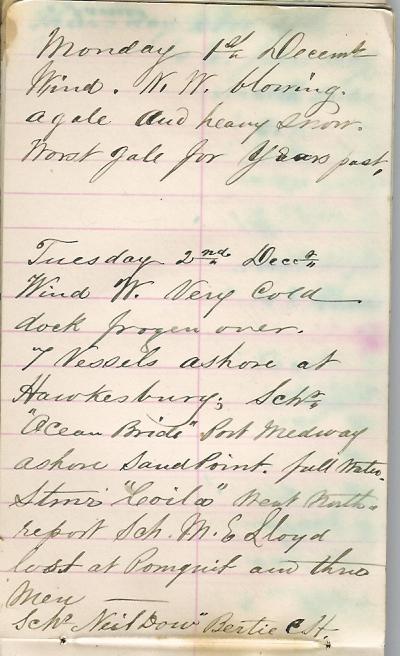 Monday 1st Decembr
Wind. N. W. blowing.
a gale and heavy snow.
Worst gale for Years past,
Tuesday 2nd Decr
Wind W. Very Cold
dock frozen over.
7 Vessels ashore at
Hawkesbury; Schr
"Ocean Bride" Port Medway
ashore Sand Point. full water.
Stmr "Coila" Went North.
report Sch. M. E Lloyd
lost at Pomquit and three
Men
Schr "Neil Dow" Bertie C.H.